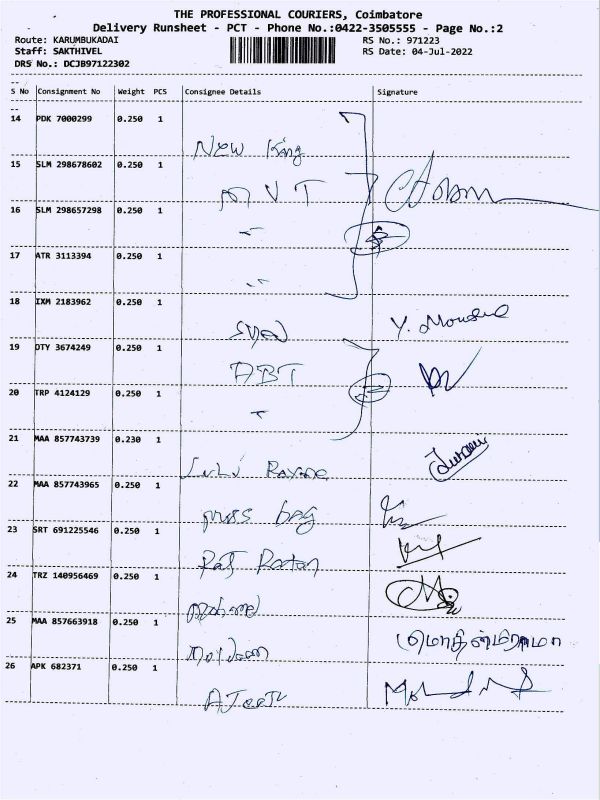 THE PROFESSIONAL COURIERS, Coimbatore
Delivery Runsheet - PCT - Phone No.:0422-3505555 - Page No.:2
Route: KARUMBUKADAI
RS No.: 971223
Staff: SAKTHIVEL
RS Date: 04-Jul-2022
DRS No.: DCJB97122302
S No Consignment No Weight PCS Consignee Details Signature
14 PDK 7000299 0.250 1
New King
15 SLM 298678602 0.250 1
M V T
16 SLM 298657298 0.250 1
17 ATR 3113394 0.250 1
18 IXM 2183962 0.250 1
19 OTY 3674249 0.250 1
ABT
20 TRP 4124129 0.250 1
21 MAA 857743739 0.230 1
22 MAA 857743965 0.250 1
bag
23 SRT 691225546 0.250 1
Raj Ratan
24 TRZ 140956469 0.250 1
25 MAA 857663918 0.250 1
26 APK 682371 0.250 1